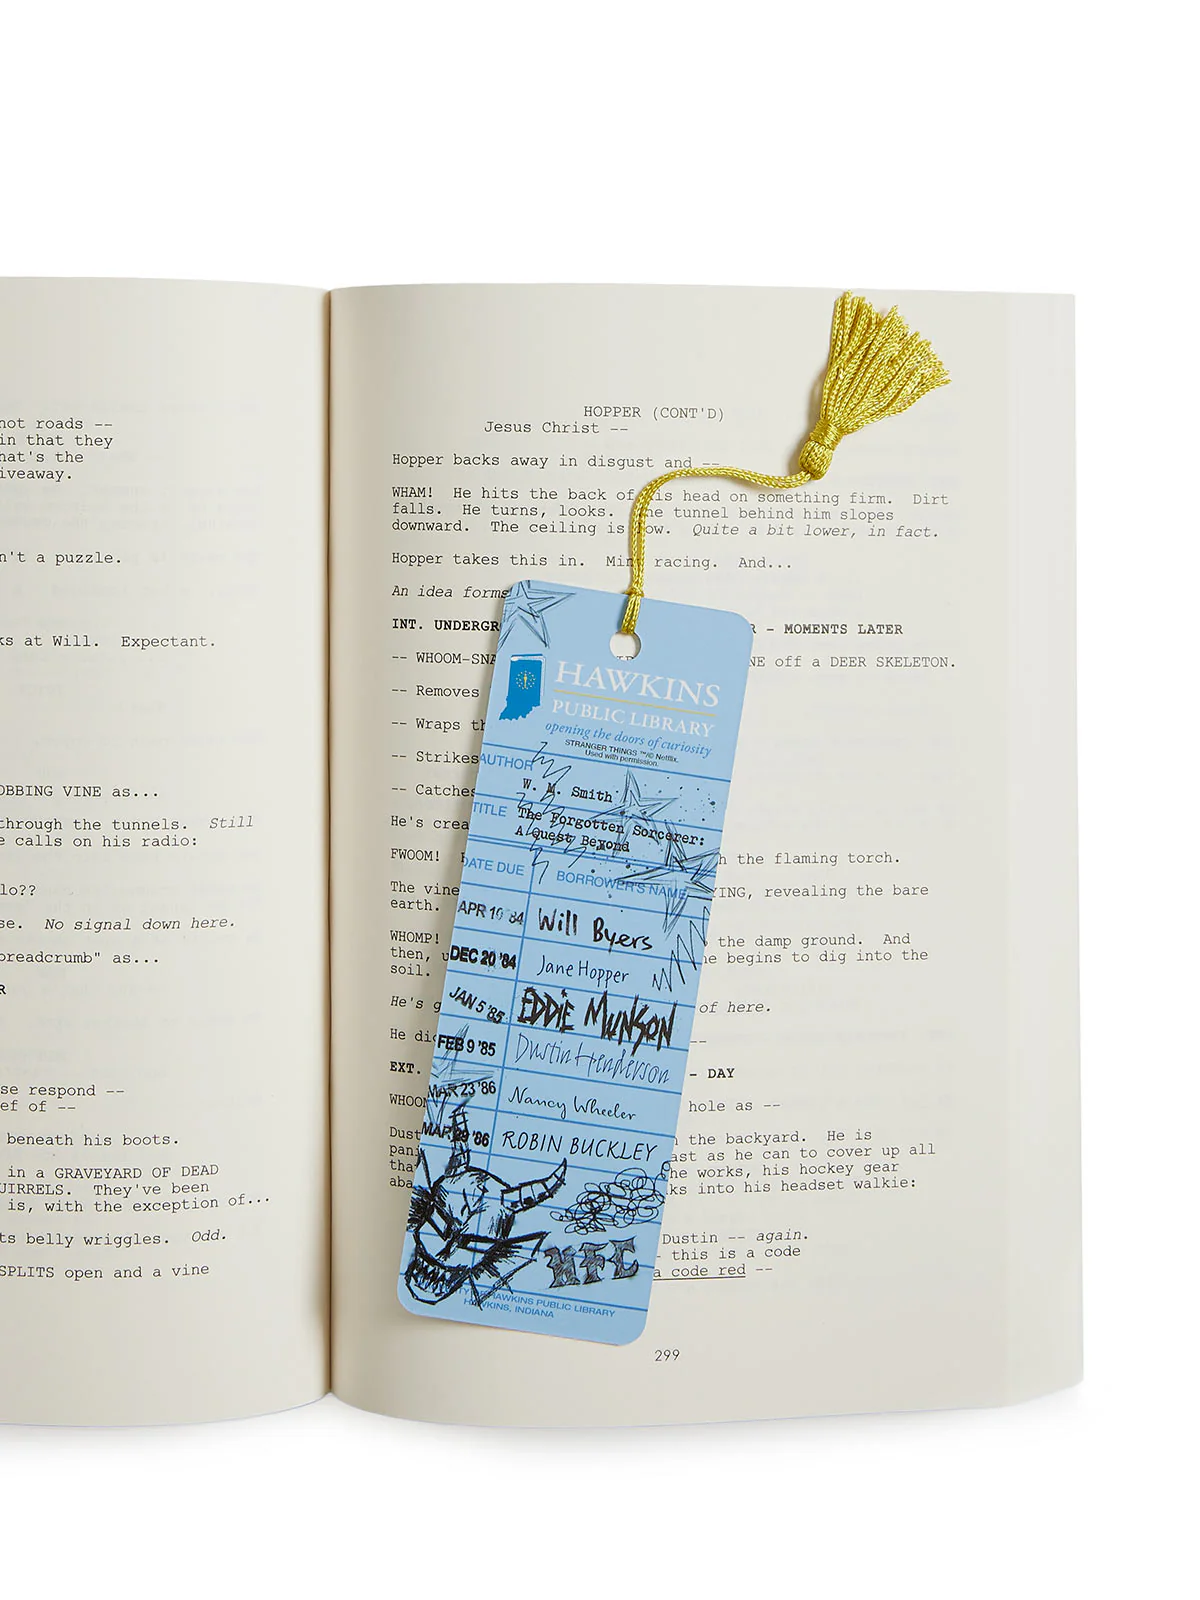 not roads --
in that they
hat's the
iveaway.
n't a puzzle.
ks at Will. Expectant.
OBBING VINE as...
through the tunnels. Still
e calls on his radio:
lo??
se. No signal down here.
breadcrumb" as...
R
se respond --
ef of --
beneath his boots.
in a GRAVEYARD OF DEAD
UIRRELS. They've been
is, with the exception of...
ts belly wriggles. Odd.
SPLITS open and a vine
HOPPER (CONT'D)
Jesus Christ --
Hopper backs away in disgust and --
WHAM! He hits the back of his head on something firm. Dirt
falls. He turns, looks. The tunnel behind him slopes
downward. The ceiling is low. Quite a bit lower, in fact.
Hopper takes this in. Mind racing. And...
An idea forms
INT. UNDERGR R - MOMENTS LATER
-- WHOOM-SNA NE off a DEER SKELETON.
-- Removes
-- Wraps th
-- Strikes
-- Catches
He's crea
FWOOM! h the flaming torch.
The vine YING, revealing the bare
earth.
WHOMP! the damp ground. And
then, u he begins to dig into the
soil.
He's g of here.
He dic --
EXT. - DAY
WHOO hole as --
Dust n the backyard. He is
pani ast as he can to cover up all
tha he works, his hockey gear
aba ks into his headset walkie:
Dustin -- again.
- this is a code
a code red --
299
HAWKINS
PUBLIC LIBRARY
opening the doors of curiosity
STRANGER THINGS ™/© Netflix.
Used with permission.
AUTHOR
W. M. Smith
TITLE
The Forgotten Sorcerer:
A Quest Beyond
DATE DUE BORROWER'S NAME
APR 10 '84 Will Byers
DEC 20 '84 Jane Hopper
JAN 5 '85 EDDIE MUNSON
FEB 9 '85 Dustin Henderson
MAR 23 '86 Nancy Wheeler
MAR 29 '86 ROBIN BUCKLEY
HFC
HAWKINS PUBLIC LIBRARY
HAWKINS, INDIANA